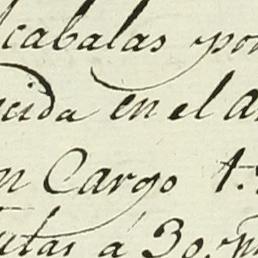 lcabalas por
cida en el a
n Cargo 1.
utas á 30.